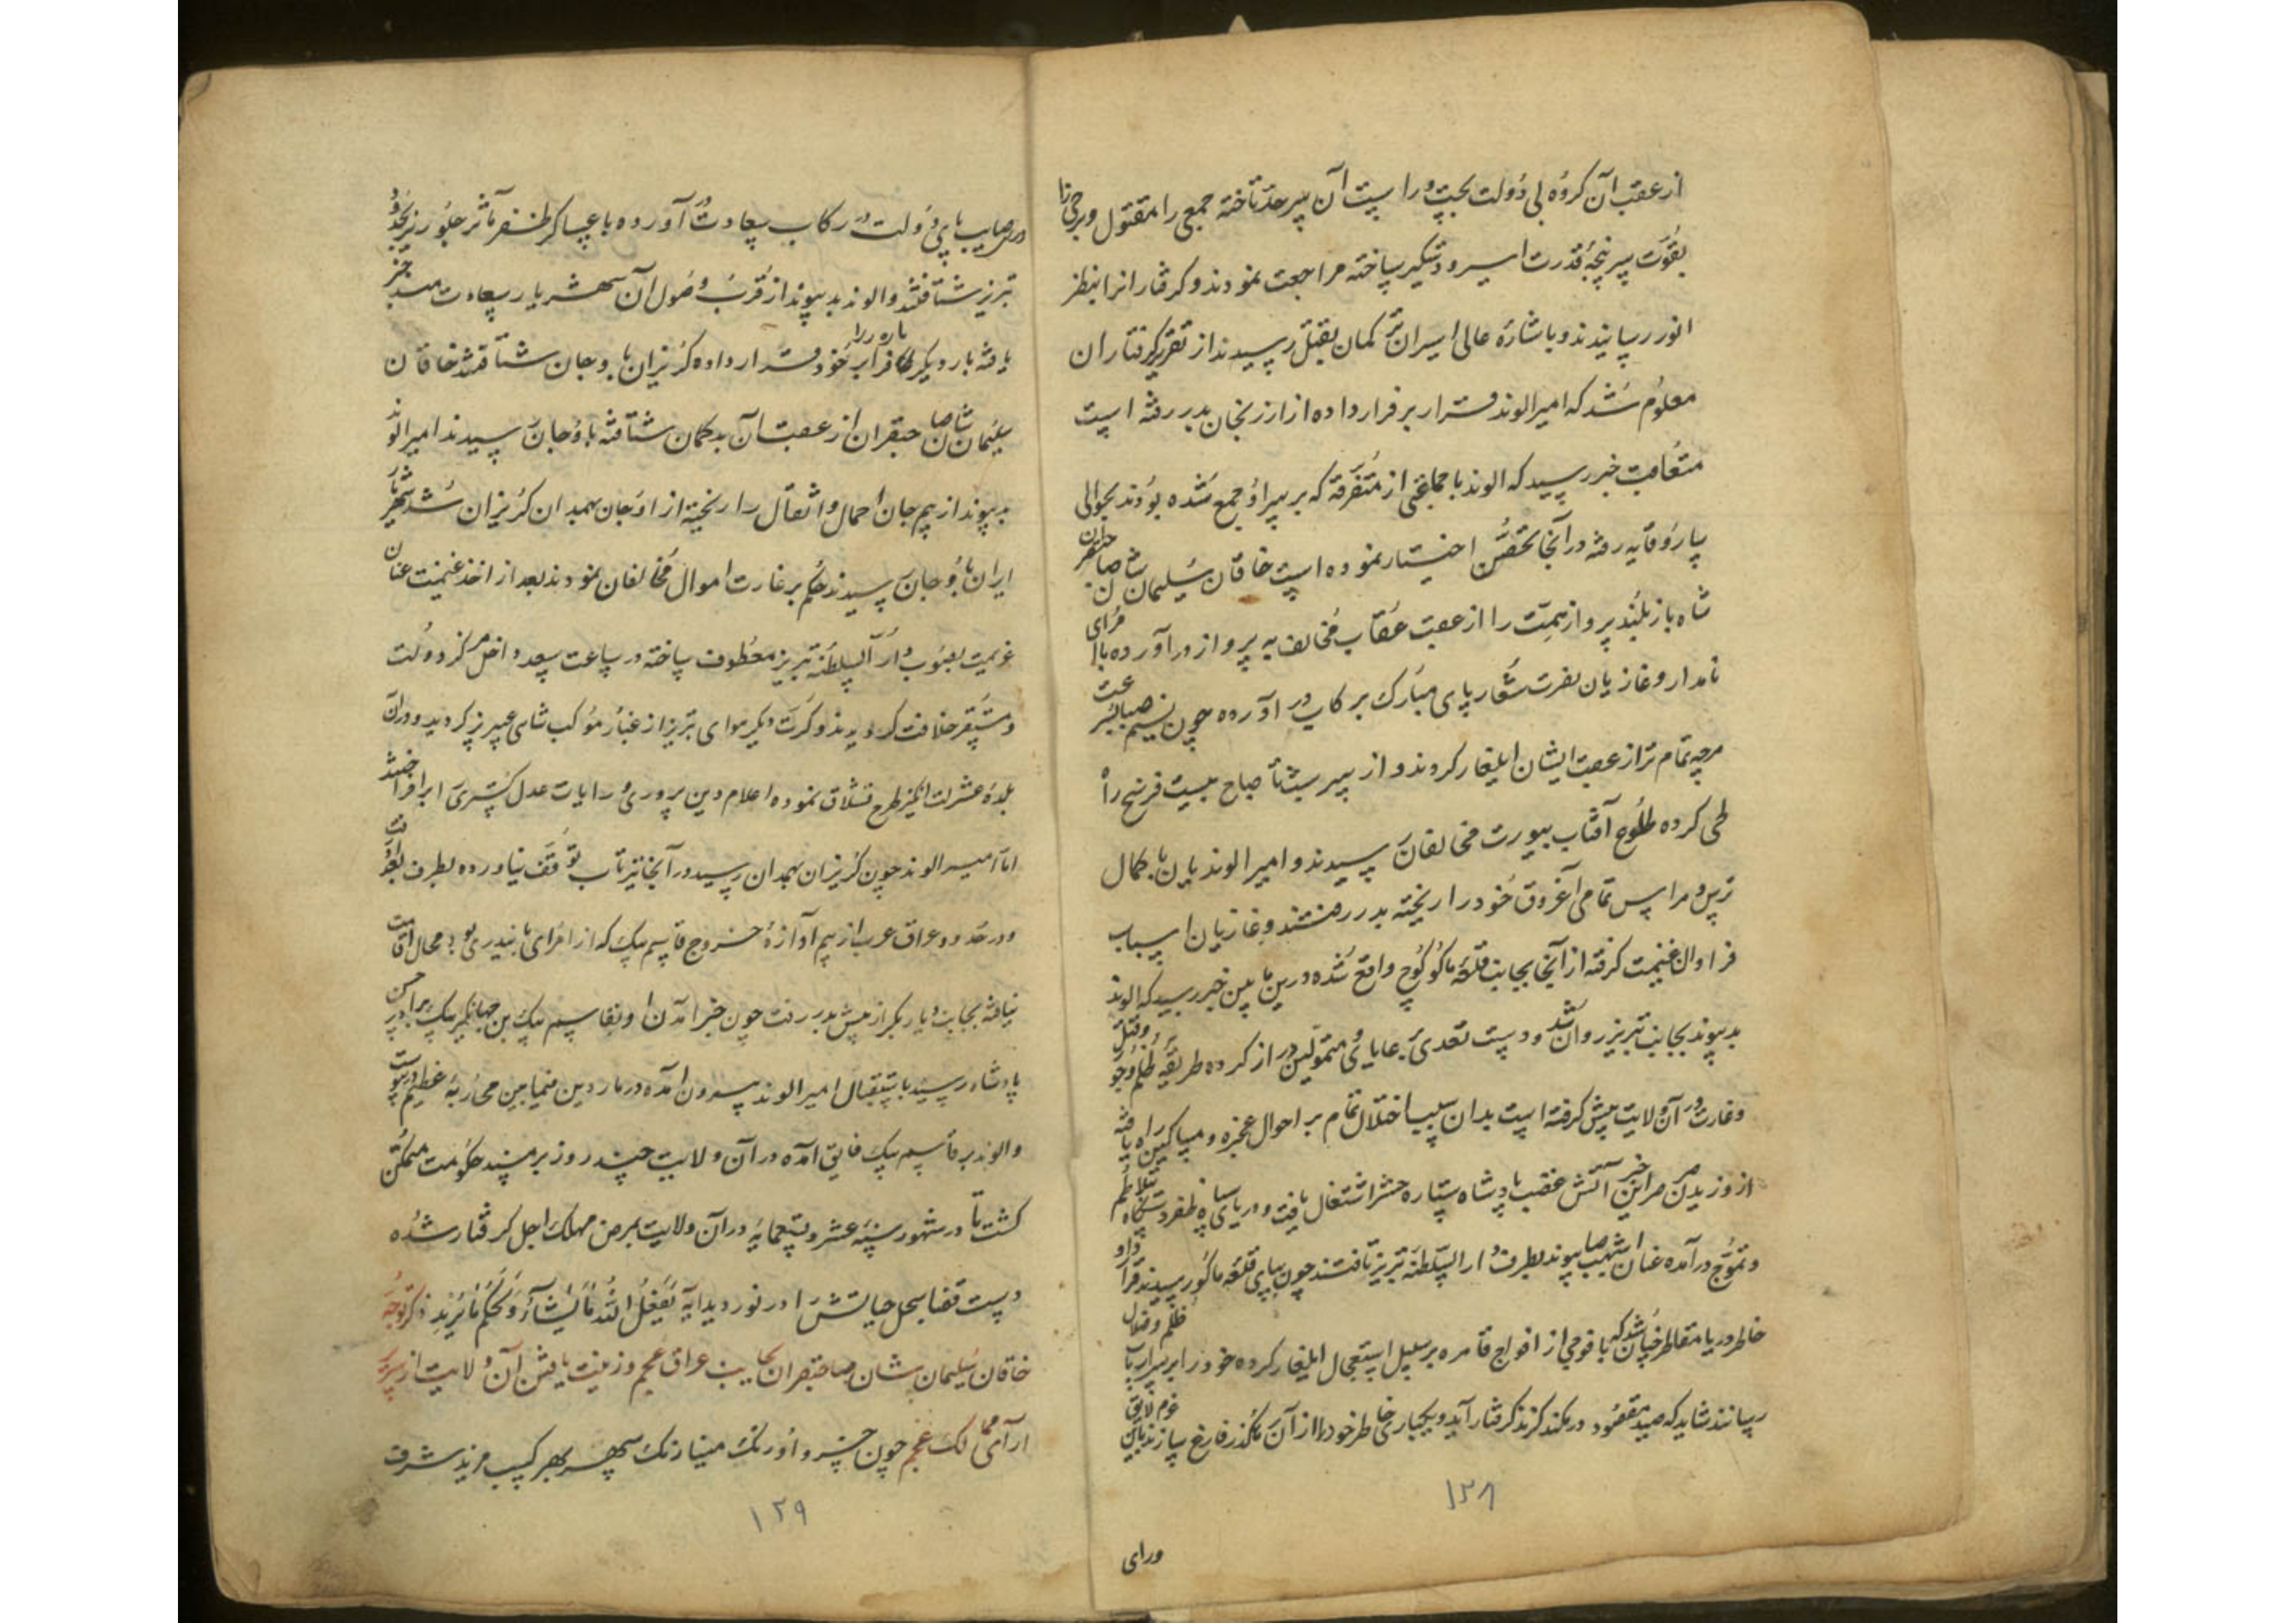 از عقب آن کروه بی دولت بحپت ورا سپت آن سرحد تاخته جمعی را مقتول وبرخی را
بقوت سرپنجهٔ قدرت اسیر و دستکیر ساخته مراجعت نمودند و کرفتارانرا بنظر
انور رسانیدند و باشارهٔ عالی اسیران ترکمان بقتل رسیدند از تقریر کرفتاران
معلوم شد که امیر الوند قرار بر فرار داده از ارزنجان بدر رفته است
متعاقب خبر رسید که الوند با جماعتی از متفرقه که بر سر او جمع شده بودند بحوالی
سارو قایه رفته در آنجا تحصن اختیار نموده است خاقان سلیمان شان صاحبقران
شاه باز بلند پرواز همت را از عقب عقاب مخالف به پرواز در آورده با امرای
نامدار و غازیان نصرت شعار پای مبارک بر کاب در آورده چون نسیم صبا بسرعت
هرچه تمام تر از عقب ایشان ایلغار کردند و از سر شب تا صباح بیست فرسخ راه
طی کرده طلوع آفتاب بیورت مخالفان رسیدند و امیر الوندیان با کمال
ترس و هراس تمامی آغروق خود را ریخته بدر رفتند و غازیان اسباب
فراوان غنیمت کرفته از آنجا بجانب قلعهٔ ماکو کوچ واقع شده درین مابین خبر رسید که الوند
بدپیوند بجانب تبریز روان شد و دست تعدی برعایا و متمولین دراز کرده طریقهٔ ظلم و جور و قتل
و غارت در آن ولایت پیش کرفته است بدان سبب اختلال تمام بر احوال عجزه و مساکین راه یافته
از وزیدن صرصر این خبر آتش غضب پادشاه ستاره حشر اشتعال یافت و دریای سپاه ظفر دستکاه بتلاطم
و تموج در آمده عنان اشهب صبا پیوند بطرف دار السلطنهٔ تبریز تافتند چون بپای قلعهٔ ماکو رسیدند قرا داد
خاطر دریا مقاطر چنان شد که با فوجی از افواج قاهره بر سبیل استعجال ایلغار کرده خود را بر سر ارباب ظلم و ضلال
رسانند شاید که صید مقصود در کمند کزند کرفتار آید و یکباره کی خاطر خود را از آن مکدر فارغ سازند باین عزم لایق
۱۳۸
ورای
و رای صایب پای دولت در رکاب سعادت آورده با عساکر ظفر مآثر جلو ریز بحدود
تبریز شتافتند و الوند بدپیوند از قرب وصول آن شهریار سعادتمند خبر
یافته بار دیکر فرار بر خود قرار داده کریزان باوجان شتافتند خاقان
سلیمان شان صاحبقران از عقب آن بدکمان شتافته باوجان رسیدند امیر الوند
بدپیوند از بیم جان احمال و اثقال را ریخته از اوجان بهمدان کریزان شد شهریار
ایران باوجان رسیدند حکم بر غارت اموال مخالفان نمودند بعد از اخذ غنیمت عنان
عزیمت بصوب دار السلطنه تبریز معطوف ساخته در ساعت سعد داخل مرکز دولت
و مستقر خلافت کردیدند و کرت دیکر هوای تبریز از غبار موکب شاهی عبیر بیز کردید و در آن
بلدهٔ عشرت انکیز طرح قشلاق نموده اعلام دین پروری و رایات عدل کستری بر افراختند
اما امیر الوند چون کریزان بهمدان رسید در آنجا نیز تاب توقف نیاورده بطرف بغداد رفت
و در حدود عراق عرب از بیم آوازهٔ خروج قاسم بیک که از امرای بایندری بود محال اقامت
نیافته بجانب دیار بکر از پیش بدر رفت چون خبر آمدن او بقاسم بیک بن جهانکیر بیک برادر حسن
پادشاه رسید باستقبال امیر الوند بیرون آمده در ماردین فیمابین محاربهٔ عظیم در پیوست
و الوند بر قاسم بیک فایق آمده در آن ولایت چند روز بر مسند حکومت متمکن
کشت تا در شهور سنهٔ عشر و تسعمایه در آن ولایت بمرض مهلک اجل کرفتار شده
دست قضا سجل حیاتش را در نوردید آیهٔ یفعل الله ما یشاء و یحکم ما یرید ذکر توجه
خاقان سلیمان شان صاحبقران بجانب عراق عجم و زینت یافتن آن ولایت از سریر
آرای ممالک عجم چون خسرو اورنک مینا رنک سپهر بهر کسب مزید شرف
۱۲۹